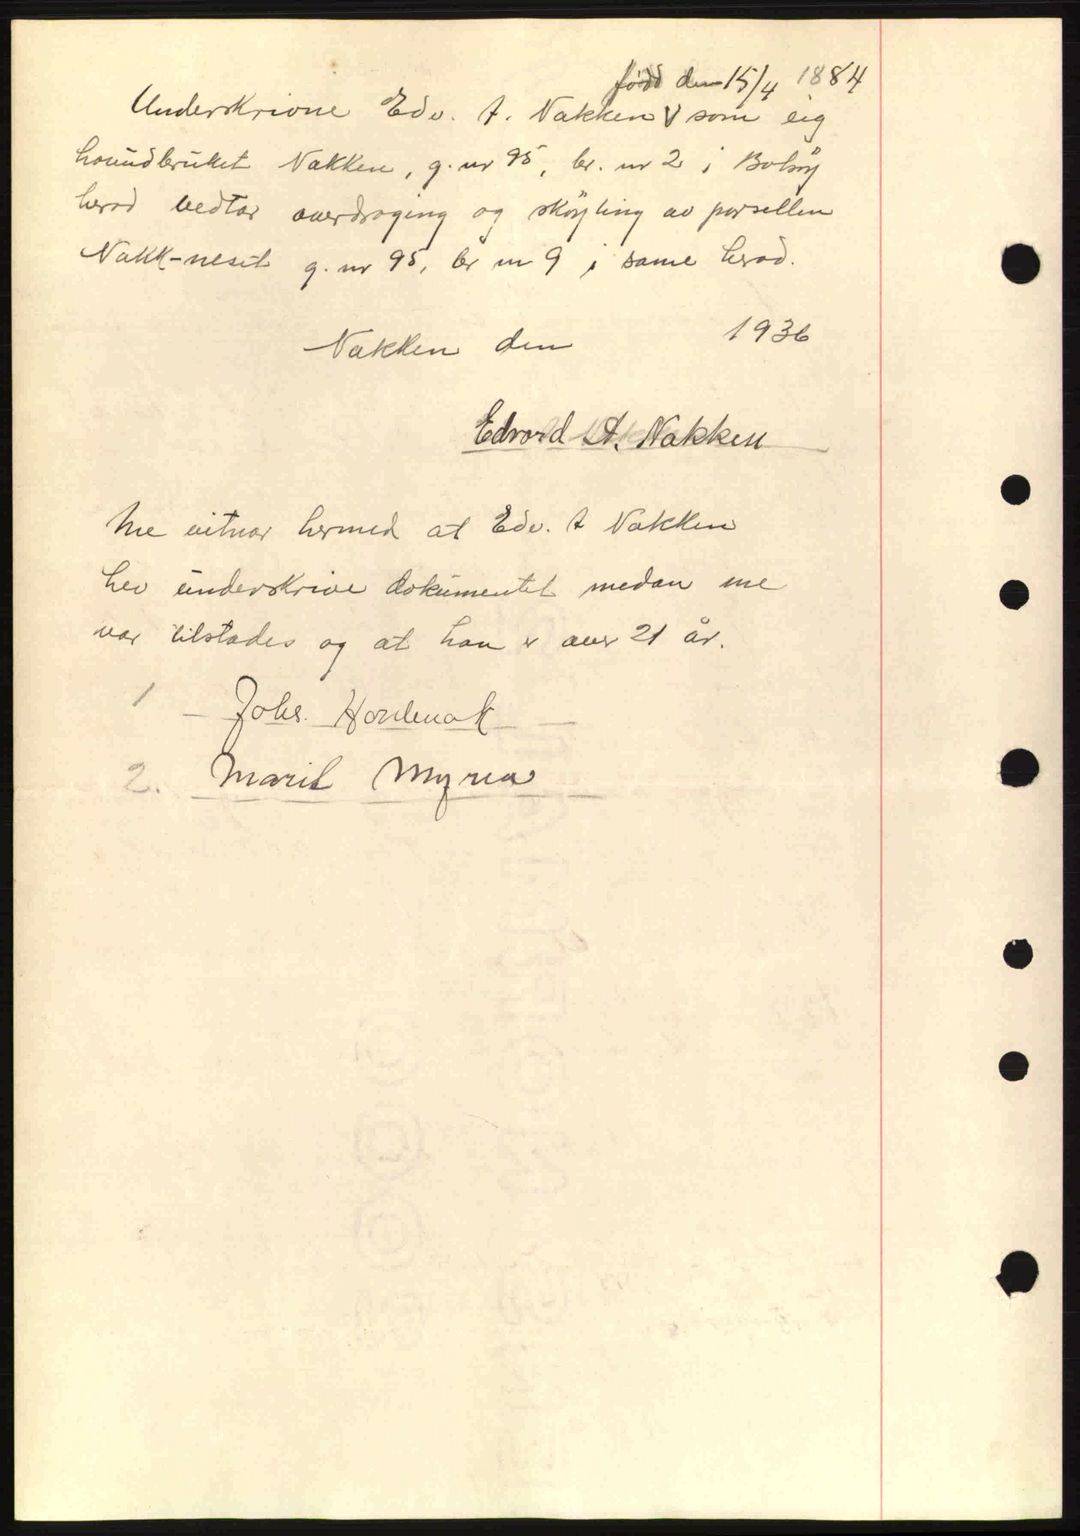 fødd den 15/4 1884
Underskrivne Edv. A. Nakken V som eig
hovudbruket Nakken, g. nr 95, br. nr 2 i Bolsøy
herad vedtar overdraging og skøyting av parsellen
Nakk-neset g. nr 95, br nr 9 i same herad.
Nakken den 1936
Edvard A. Nakken
Me vitnar hermed at Edv. A Nakken
hev underskrive dokumentet medan me
var tilstades og at han er over 21 år.
1 Johs. Hordenak
2. Marit Myren